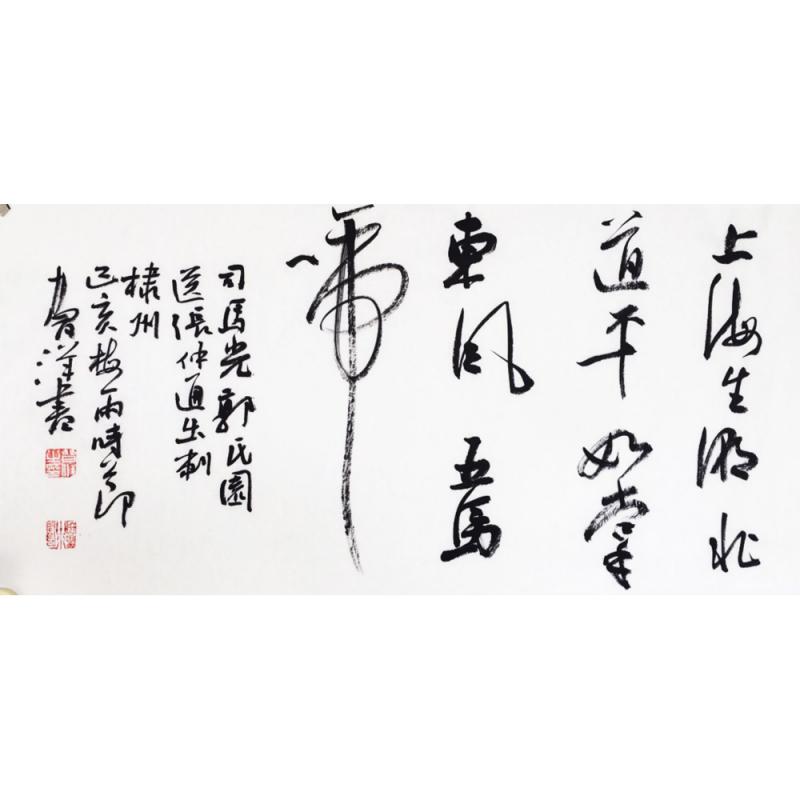 上海生
道平如掌
東風五馬
司馬光郭氏園
送張仲通出刺
棣州
己亥梅雨時節
洋書